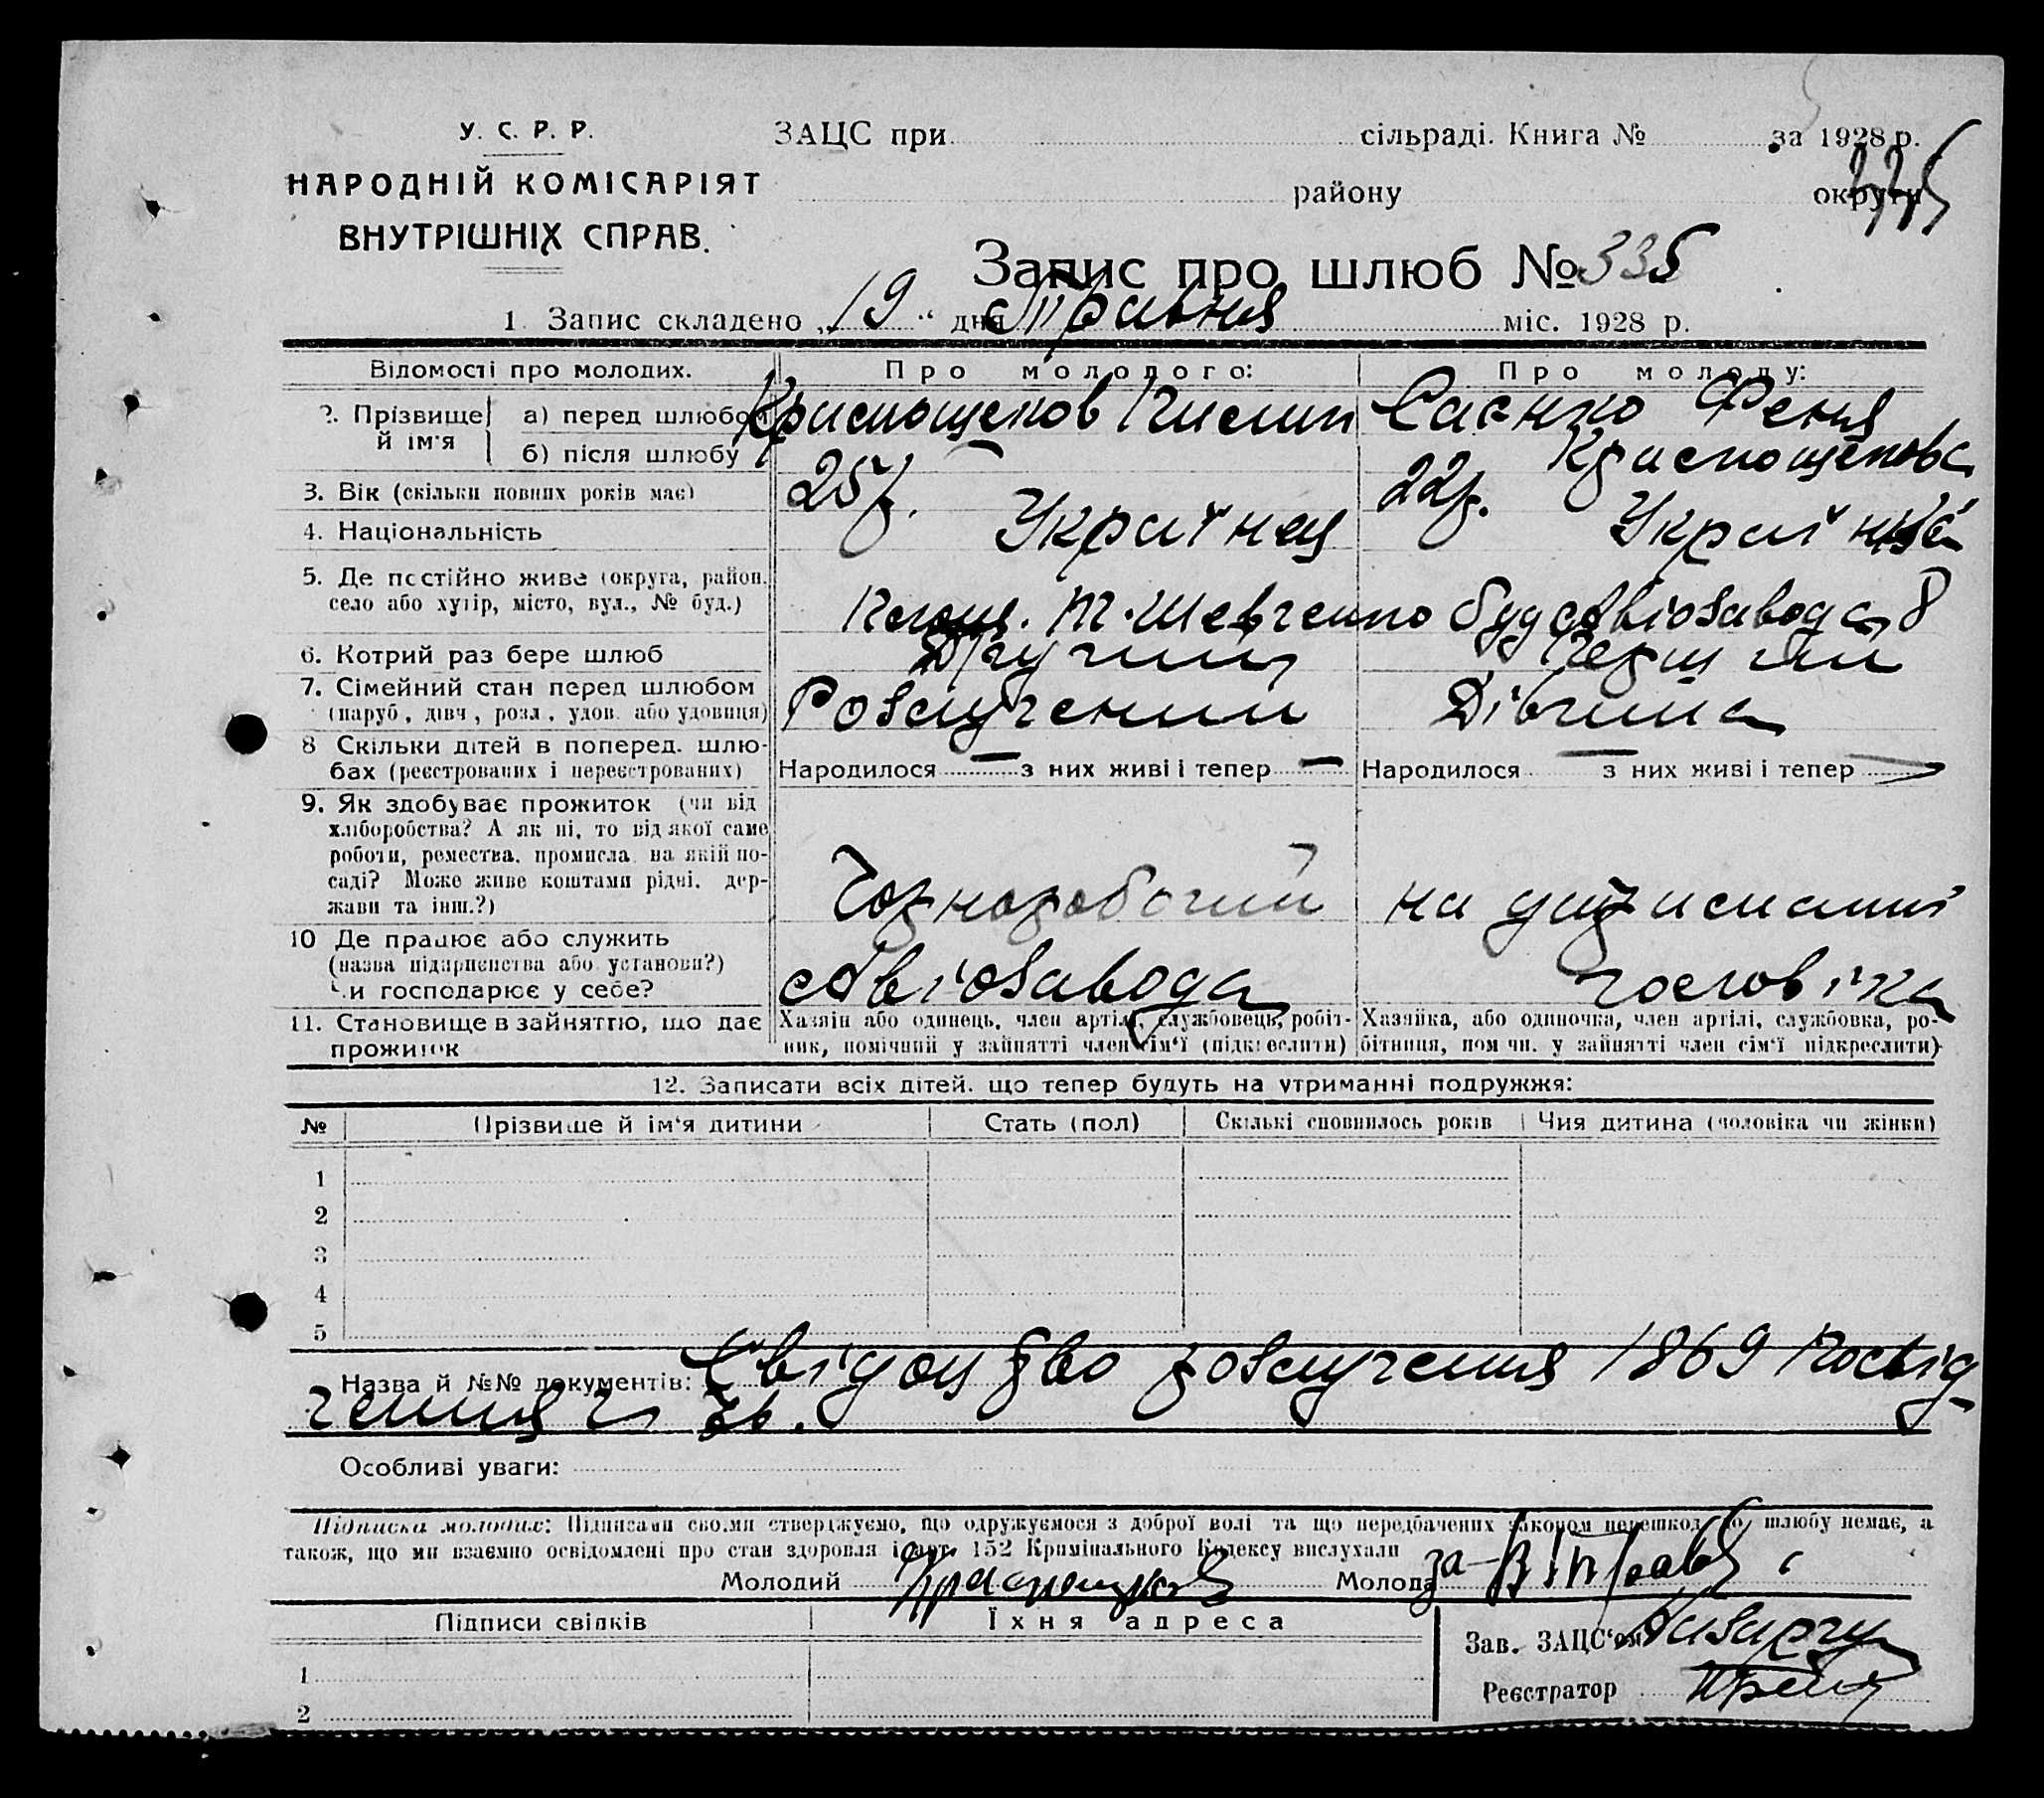 У. С. Р. Р.
НАРОДНІЙ КОМІСАРІЯТ
ВНУТРІШНІХ СПРАВ.
ЗАЦС при сільраді. Книга № за 1928 р.
району округи
335
Запис про шлюб № 335
1. Запис складено „19“ дня Травня міс. 1928 р.
Відомості про молодих. Про молодого: Про молоду:
2. Прізвище й ім'я а) перед шлюбом Краснощоков Саєнко Феня
б) після шлюбу Краснощокова
3. Вік (скільки повних років має) 25 р. 22 р.
4. Національність Українец Українка
5. Де постійно живе (округа, район,
село або хутір, місто, вул., № буд.) Т. Шевченко буд Авіозавода 8
6. Котрий раз бере шлюб Другий Перший
7. Сімейний стан перед шлюбом
(паруб., дівч., розл., удов. або удовиця) Розлучений Дівчина
8 Скільки дітей в поперед. шлю-
бах (реєстрованих і нереєстрованих) Народилося — з них живі і тепер — Народилося — з них живі і тепер —
9. Як здобуває прожиток (чи від
хліборобства? А як ні, то від якої саме
роботи, ремества, промисла, на якій по-
саді? Може живе коштами рідні, дер-
жави та інш.?) Чорноробочий на утриманні
10 Де працює або служить
(назва підприємства або установи?)
Чи господарює у себе? Авіозавода чоловіка
11. Становище в зайняттю, що дає
прожиток
Хазяїн або одинець, член артілі, службовець, робіт-
ник, помічний у зайнятті член сім'ї (підкреслити)
Хазяйка, або одиночка, член артілі, службовка, ро-
бітниця, пом чн. у зайнятті член сім'ї підкреслити)
12. Записати всіх дітей, що тепер будуть на утриманні подружжя:
№ Прізвище й ім'я дитини Стать (пол) Скількі сповнилось років Чия дитина (чоловіка чи жінки)
1
2
3
4
5
Назва й №№ документів: Свідоцтво розлучення 1869 Посвід-
чення
Особливі уваги:
Підписка молодих: Підписами своїми стверджуємо, що одружуємося з доброї волі та що передбачених законом перешкод до шлюбу немає, а
також, що ми взаємно освідомлені про стан здоровля і арт. 152 Кримінального Кодексу вислухали
Молодий Молода за
Підписи свідків Їхня адреса
Зав. ЗАЦС'ом
1
Реєстратор
2